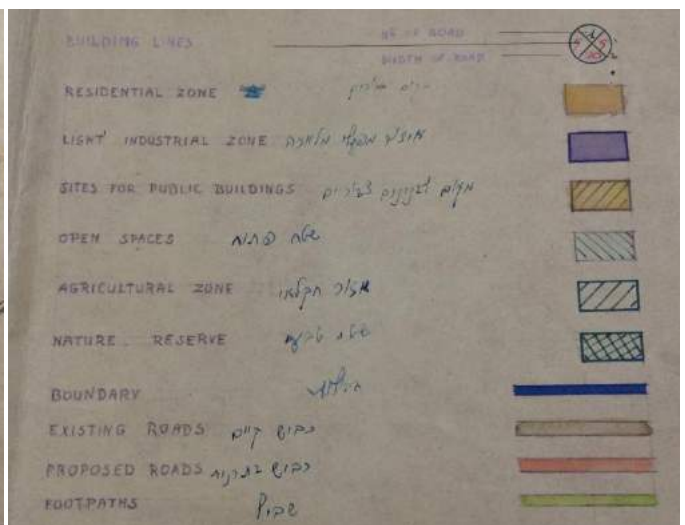 BUILDING LINES Nº OF ROAD
WIDTH OF ROAD
RESIDENTIAL ZONE
LIGHT INDUSTRIAL ZONE אזור מלאכה
SITES FOR PUBLIC BUILDINGS מקום לבנינים צבוריים
OPEN SPACES שטח פתוח
AGRICULTURAL ZONE אזור חקלאי
NATURE RESERVE שטח טבעי
BOUNDARY
EXISTING ROADS כביש קיים
PROPOSED ROADS כביש
FOOTPATHS שביל